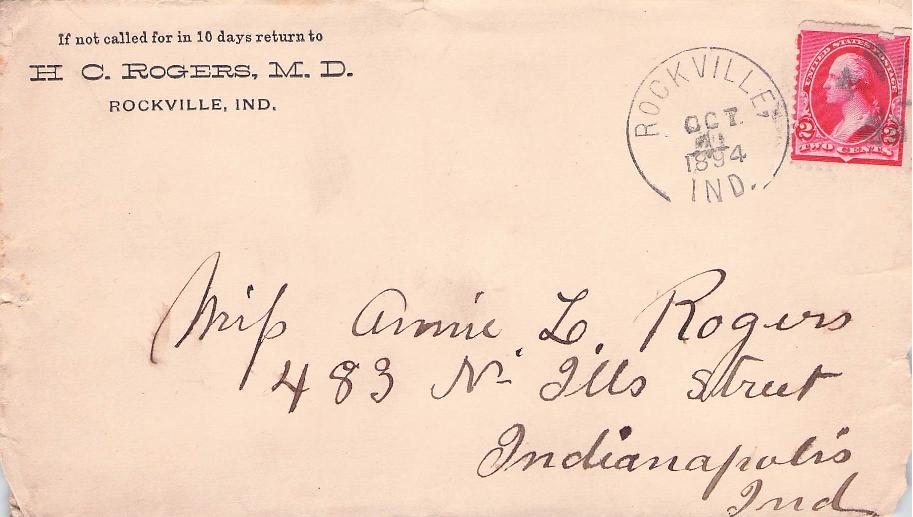 If not called for in 10 days return to
H C. ROGERS, M. D.
ROCKVILLE, IND.
ROCKVILLE,
OCT
1894
IND.
UNITED STATES POSTAGE
2 2
TWO CENTS
Miss Annie L. Rogers
483 N. Ills Street
Indianapolis
Ind